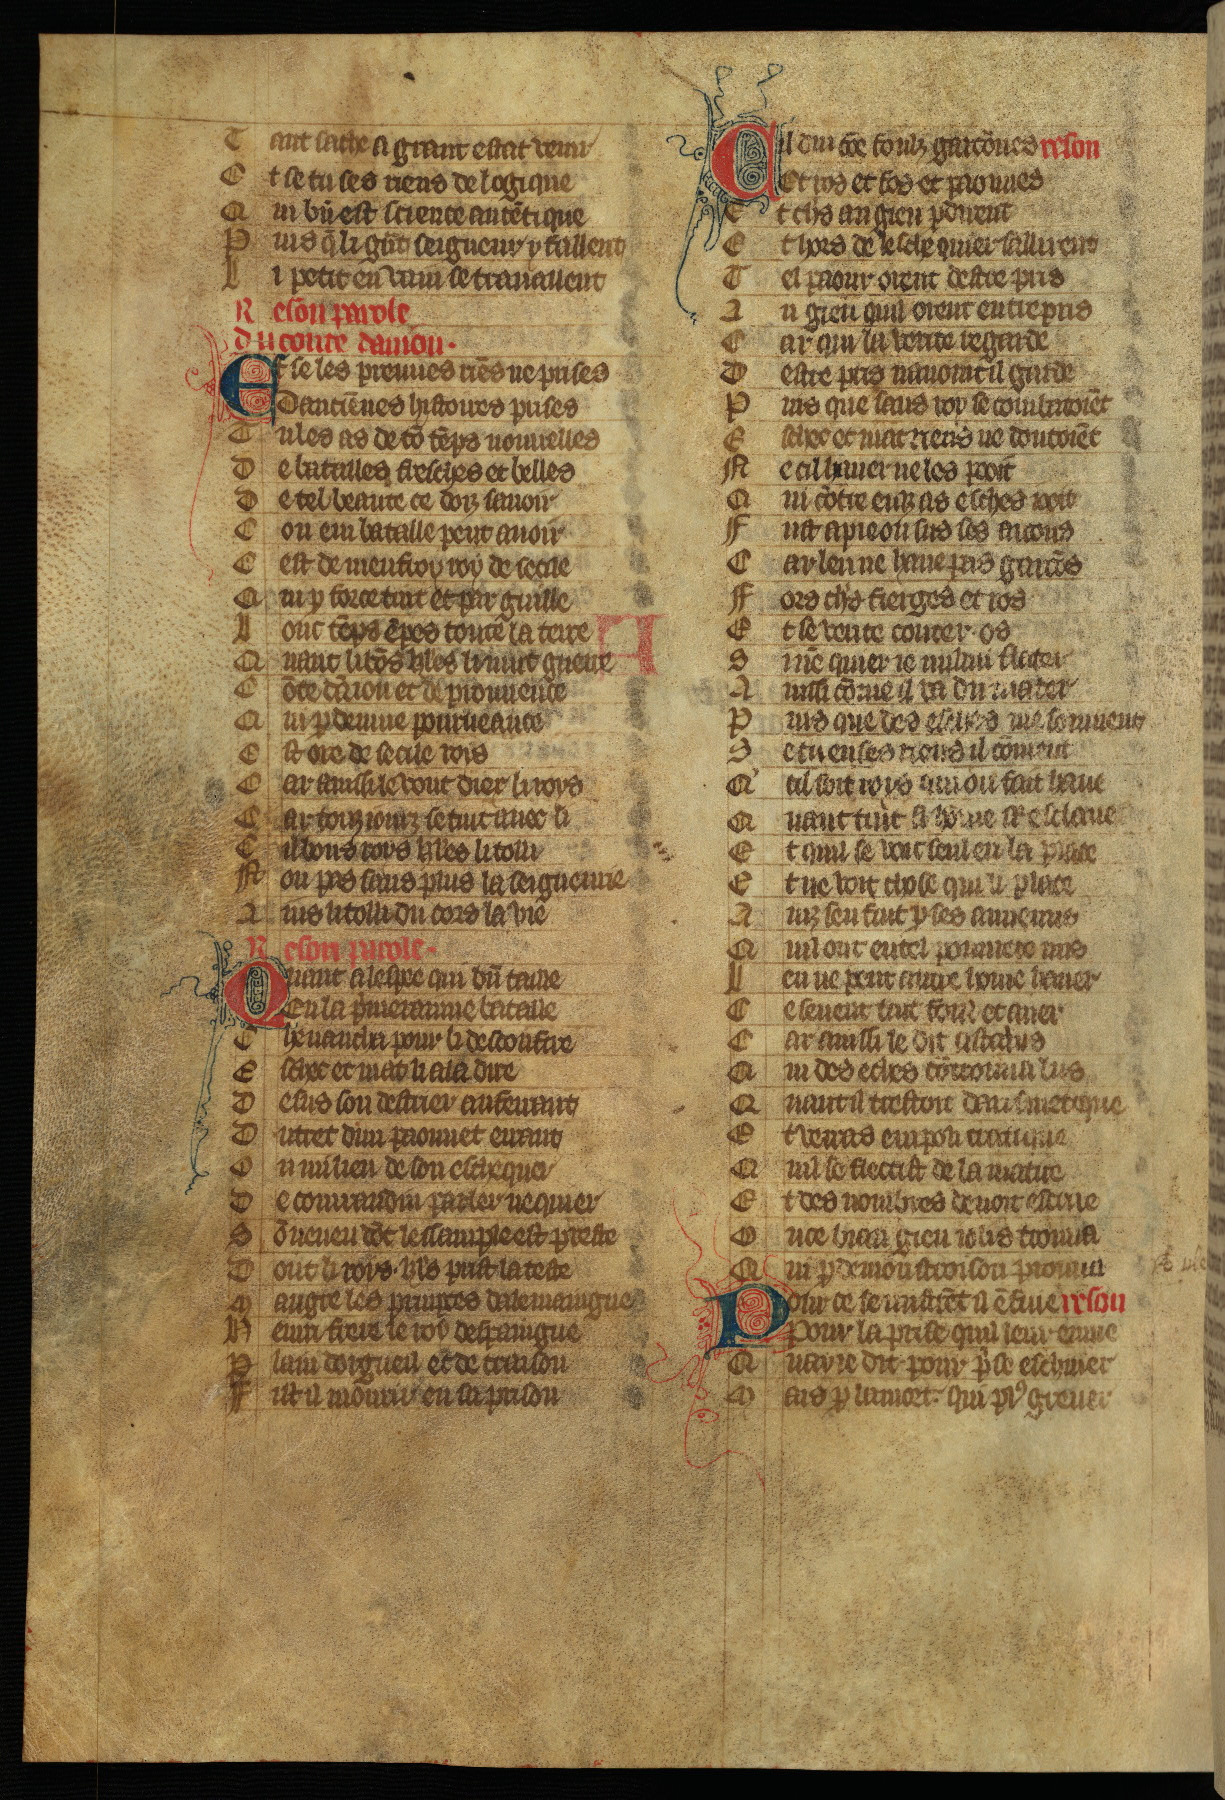 T ant sache a grant estat venir
E t se tu ses riens de logique
Q ui bñ est science autẽtique
P uis q̃ li gñt seigneur y faillent
L i petit en vain se travaillent
R eson parole
du conte danion.
Et se les preuues riẽs ne prises
Danciẽnes histoires prises
T u les as de tõ tẽps nouuelles
D e batailles fresches et belles
D e tel beaute ce doiz sauoir
C on em bataille peut auoir
C est de meufroy roy de secile
Q ui p force tint et par guille
L onc tẽps ẽ pes toute la terre
Q uant li bõs kĺes li mut guerre
C õte dãiou et de prouuence
Q ui p deuine pourueance
E st ore de secile rois
C ar ainssi le vout dier li roys
C ar touz iourz se tint auec li
C il bons roys kĺes li tolli
N on pas sans plus la seigneurie
A ins li tolli du cors la vie
R eson parole.
Quant a lespee qui bñ taille
En la p̃meraine bataille
C heuaucha pour li desconfire
E schec et mat li ala dire
D esus son destrier auferrant
D u tret dun paonnet errant
O u milieu de son eschequier
D e corraudin parler ne quier
S õ neueu dõt lessample est preste
D ont li roys kĺs prist la teste
M augre les princes dalemaingne
H enrri frere le roy despaingne
P lain dorgueil et de traison
F ist il mourir en sa prison
Cil dui cõe foulz garcõnes reson
Et ros et fos et paonnes
E t chrs au gieu pdirent
E t hors de leschequier saillirent
T el paour orent destre pris
A u gieu quil orent entrepris
C ar qui la verite regarde
D estre pris nauoient il garde
P uis que sans roy se combatoiẽt
E schec et mat riens ne doutoiẽt
N e cil hauer ne les pooit
Q ui cõtre eulz as esches iooit
F ust a pie ou sus les arcons
C ar len ne haue pas garcõs
F ors chrs fierges et ros
E t se verite conter os
S i nẽ quier ie nului flater
A inssi cõme il va du mater
P uis que des esches me souuient
S e tu en ses riens il couient
Q cil soit roys qui on fait haue
Q uant tuit si hõme st esclaue
E t quil se voit seul en la place
E t ne voit chose qui li place
A inz sen fuit p ses anemis
Q uil ont en tel pourete mis
L en ne peut autre home hauer
C e seuent tuit
C ar ainssi le dit
Q ui des esches
Q uant il tretoit darismetique
E t verras em
Q uil se flecist de la matire
E t des nombres deuoit escrire
O u ce biau gieu iolis trouua
Q ui p demonstroison prouua
Pour ce se mistrẽt il ẽ fuie reson
Pour la prise
Q uay ie dit pour p̃se eschiuer
M ais p la mort. qui pl9 greuer